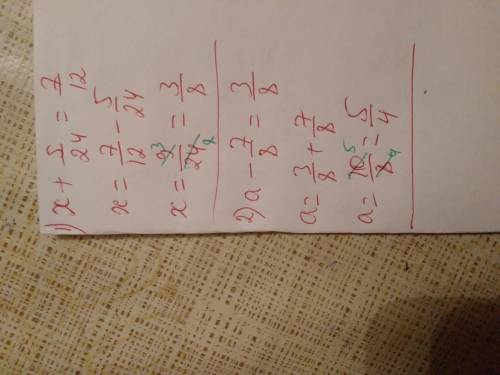 1) x + 5/24 = 7/12
x = 7/12 - 5/24
x = 9 3/24 8 = 3/8
2) a - 7/8 = 3/8
a = 3/8 + 7/8
a = 10 5/8 4 = 5/4